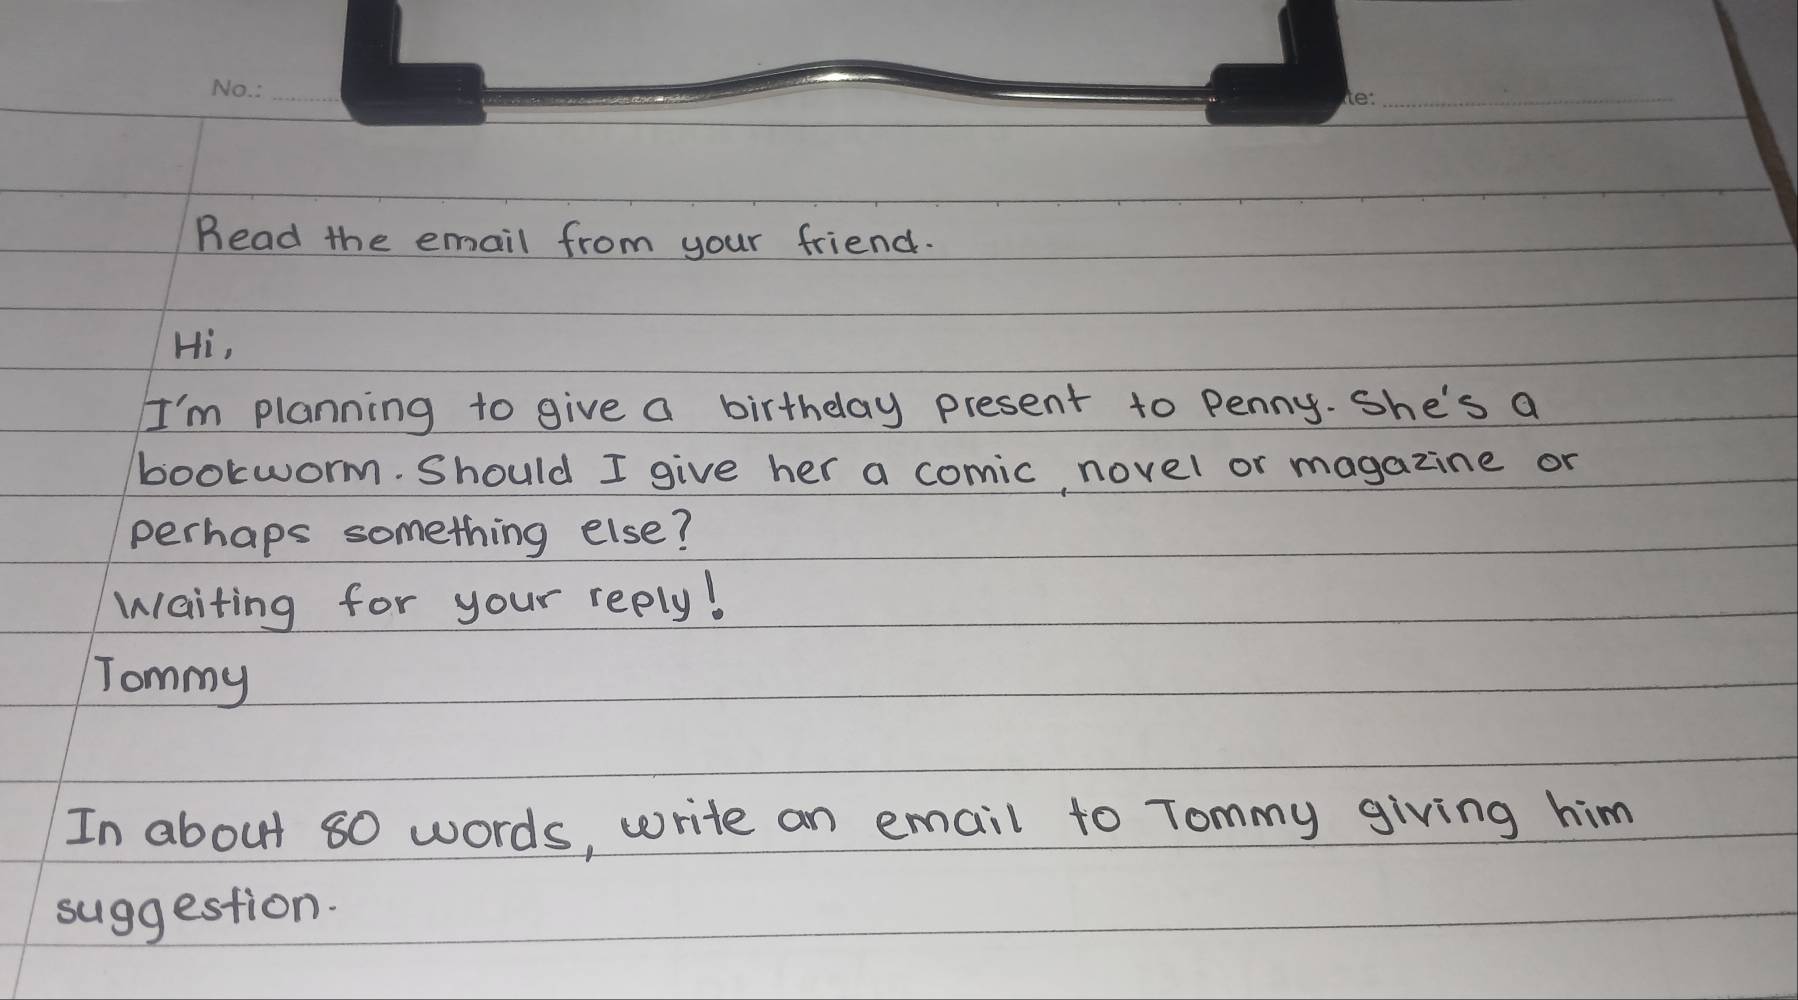 No.:
te:
Read the email from your friend.
Hi,
I'm planning to give a birthday present to Penny. She's a
bookworm. Should I give her a comic, novel or magazine or
perhaps something else?
Waiting for your reply!
Tommy
In about 80 words, write an email to Tommy giving him
suggestion.